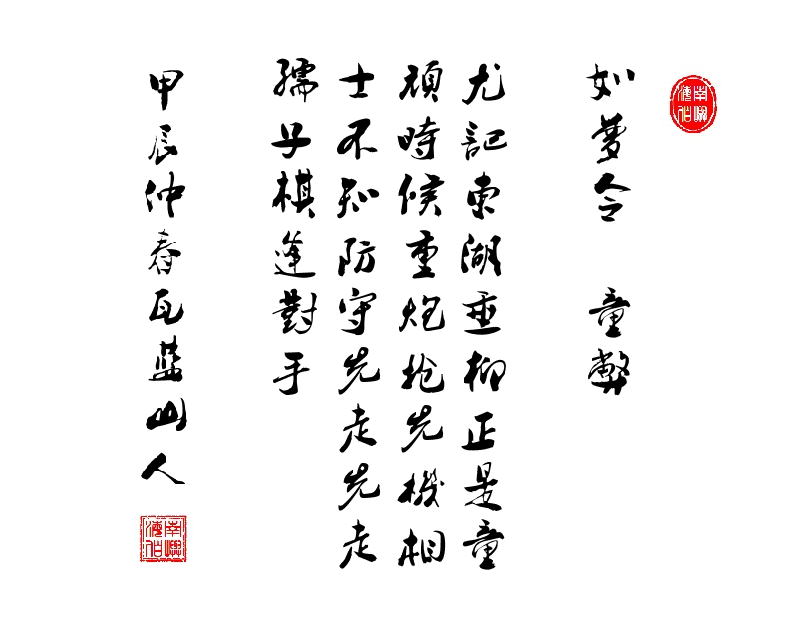 如夢令 童弊
尤記東湖垂柳正是童
頑時候重炮抢先機相
士不知防守先走先走
孺子棋逢對手
甲辰仲春瓦藍山人